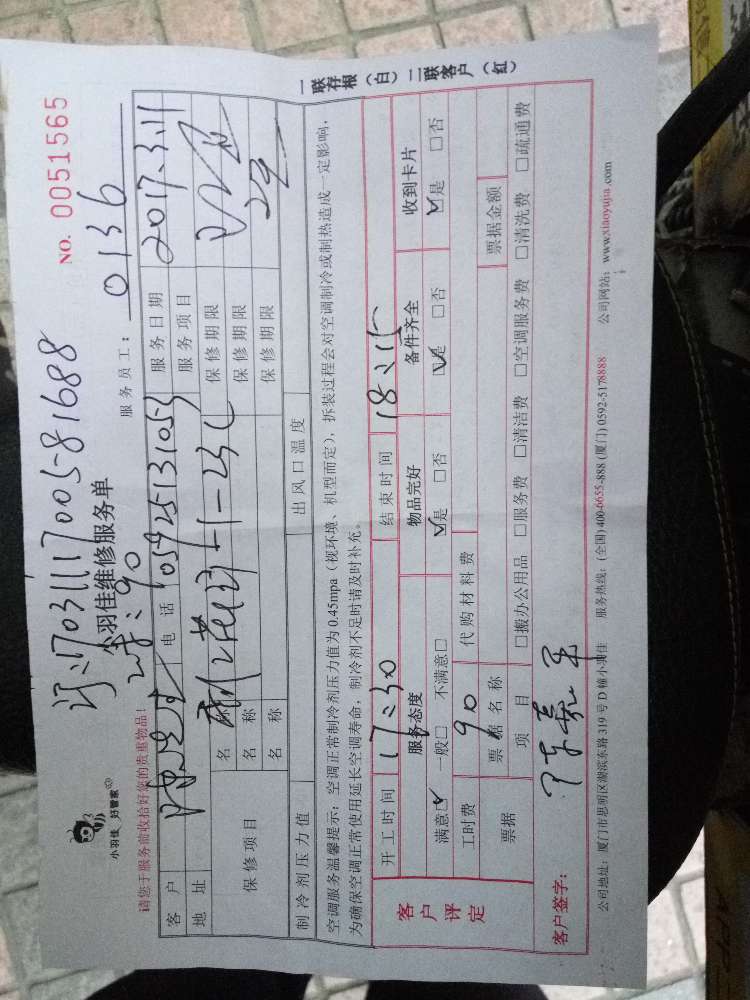 订:170311170005-81688
NO. 0051565
小羽佳 好管家
小羽佳维修服务单
:90
服务员工: 0136
请您于服务前收拾好您的贵重物品!
客户 电话 05925131053 服务日期 2017.3.11
地址 服务项目
保修项目 名称 保修期限
名称 保修期限
名称 保修期限
制冷剂压力值 出风口温度
空调服务温馨提示:空调正常制冷剂压力值为 0.45mpa(视环境、机型而定),拆装过程会对空调制冷或制热造成一定影响,
为确保空调正常使用延长空调寿命,制冷剂不足时请及时补充。
客户评定 开工时间 17:30 结束时间 18:15
服务态度 物品完好 备件齐全 收到卡片
满意☑ 一般□ 不满意□ ☑是 □否 ☑是 □否 ☑是 □否
工时费 90 代购材料费
票据 票据名称 票据金额
项目 □搬办公用品 □服务费 □清洁费 □空调服务费 □清洗费 □疏通费
客户签字:
公司地址:厦门市思明区湖滨东路 319 号 D 幢小羽佳 服务热线:(全国)400-6655-888 (厦门) 0592-5178888 公司网站:www.xiaoyujia.com
一联存根(白)二联客户(红)